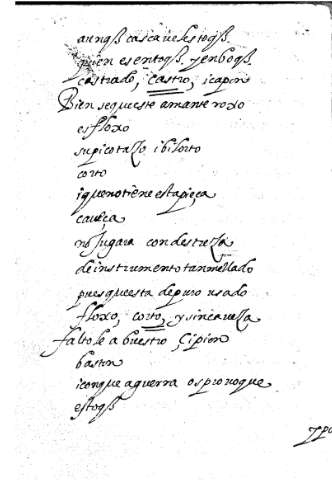 aunqs̃ cascaveles toqs̃
quien es entoqs̃ y enboqs̃
castrado, castro, i capon
Bien se que este amante roxo
es floxo
su picotazo i bilorto
corto
i que no tiene esta pieça
caveça
no Jugara con destreza
de instrumento tan mellado
pues questa de puro usado
floxo, corto, y sin cavessa
faltole a buestro Çipion
baston
i con que a guerra os provoque
estoqs̃